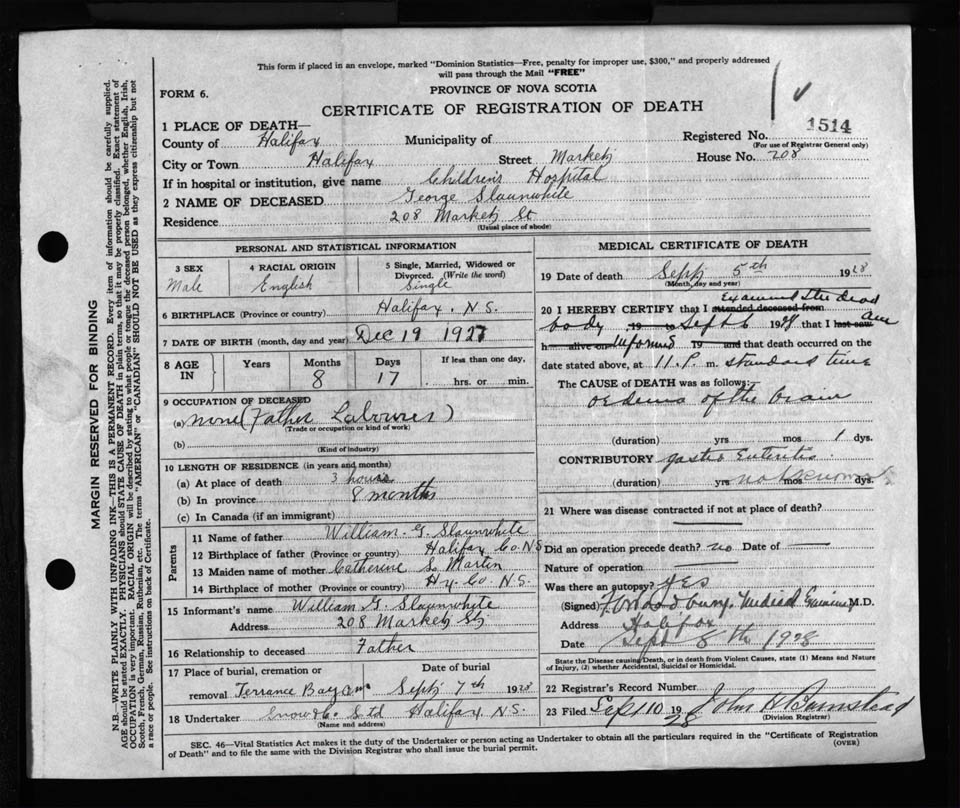 This form if placed in an envelope, marked "Dominion Statistics—Free, penalty for improper use, $300," and properly addressed
will pass through the Mail "FREE"
FORM 6.
PROVINCE OF NOVA SCOTIA
CERTIFICATE OF REGISTRATION OF DEATH
1 PLACE OF DEATH—
Registered No. 1514
(For use of Registrar General only)
County of Halifax Municipality of
City or Town Halifax Street Market House No. 208
If in hospital or institution, give name Childrens Hospital
2 NAME OF DECEASED George Slaunwhite
Residence 208 Market St
(Usual place of abode)
PERSONAL AND STATISTICAL INFORMATION
3 SEX Male
4 RACIAL ORIGIN English
5 Single, Married, Widowed or Divorced. (Write the word) Single
6 BIRTHPLACE (Province or country) Halifax, N.S.
7 DATE OF BIRTH (month, day and year) Dec 19 1927
8 AGE IN Years Months 8 Days 17 If less than one day, hrs. or min.
9 OCCUPATION OF DECEASED
(a) none (Father Labourer)
(Trade or occupation or kind of work)
(b)
(Kind of industry)
10 LENGTH OF RESIDENCE (in years and months)
(a) At place of death 3 hours
(b) In province 8 months
(c) In Canada (if an immigrant)
Parents
11 Name of father William G. Slaunwhite
12 Birthplace of father (Province or country) Halifax Co N.S
13 Maiden name of mother Catherine L Martin
14 Birthplace of mother (Province or country) Hx Co N.S.
15 Informant's name William G. Slaunwhite
Address 208 Market St
16 Relationship to deceased Father
17 Place of burial, cremation or removal Terrance Bay Date of burial Sept 7th 1928
18 Undertaker Snow & Co Ltd Halifax N.S.
(Name and address)
MEDICAL CERTIFICATE OF DEATH
19 Date of death Sept 5th 1928
(Month, day and year)
20 I HEREBY CERTIFY that I attended deceased from Examined the dead
body 19 to Sept 6 1928 that I last saw am
h alive on informed 19 and that death occurred on the
date stated above, at 11.P. m. standard time
The CAUSE of DEATH was as follows:
oedema of the brain
(duration) yrs mos 1 dys.
CONTRIBUTORY gastro Enteritis
(duration) yrs mos dys. not known
21 Where was disease contracted if not at place of death?
Did an operation precede death? no Date of
Nature of operation
Was there an autopsy? yes
(Signed) Medical Examiner M.D.
Address Halifax
Date Sept 8th 1928
State the Disease causing Death, or in death from Violent Causes, state (1) Means and Nature of Injury, (2) whether Accidental, Suicidal or Homicidal.
22 Registrar's Record Number
23 Filed Sept 10 1928 John H Barnstead
(Division Registrar)
SEC. 46—Vital Statistics Act makes it the duty of the Undertaker or person acting as Undertaker to obtain all the particulars required in the "Certificate of Registration
of Death" and to file the same with the Division Registrar who shall issue the burial permit.
(OVER)
MARGIN RESERVED FOR BINDING
N.B.—WRITE PLAINLY WITH UNFADING INK—THIS IS A PERMANENT RECORD. Every item of information should be carefully supplied.
AGE should be stated EXACTLY. PHYSICIANS should STATE CAUSE OF DEATH in plain terms, so that it may be properly classified. Exact statement of
OCCUPATION is very important. RACIAL ORIGIN will be described by stating to what people or tongue the deceased person belonged, whether English, Irish,
Scotch, French, German, Russian, Ruthenian, etc. The terms "AMERICAN" or "CANADIAN" SHOULD NOT BE USED as they express citizenship but not
a race or people. See instructions on back of Certificate.